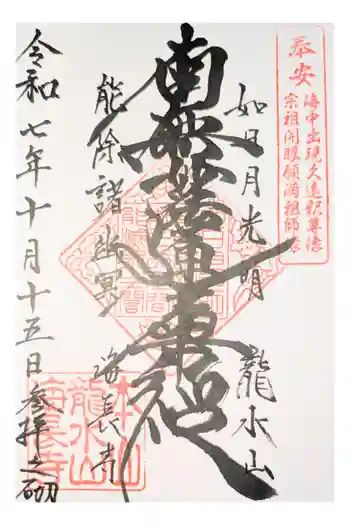 奉安
海中出現久遠釈尊像
宗祖開眼願満祖師像
如日月光明 龍水山
南無妙法蓮華経
能除諸幽冥 海長寺
令和七年十月十五日参拝之砌
本山
龍水山
海長寺